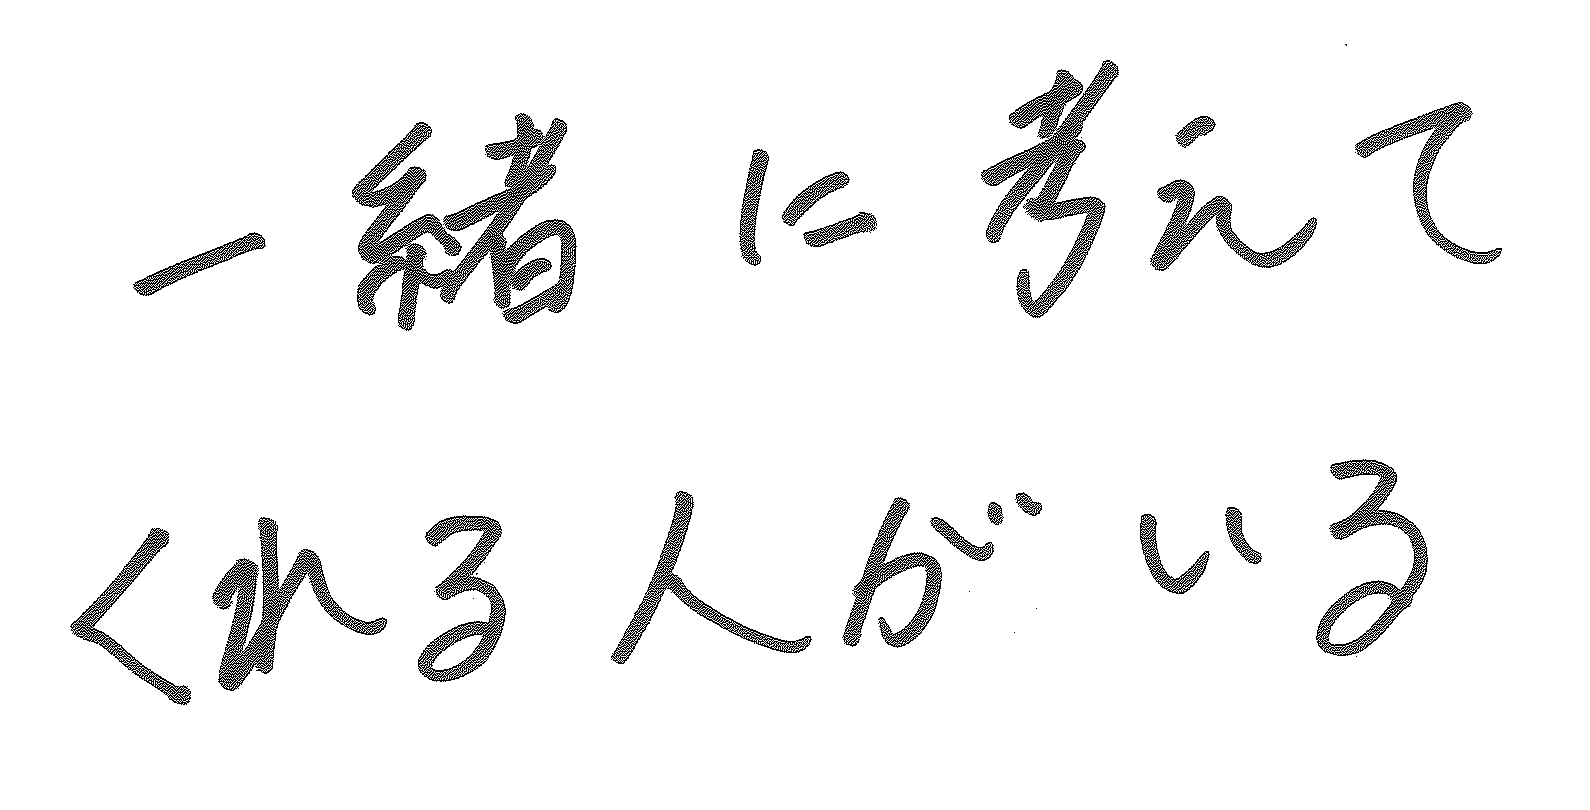 一緒に考えて
くれる人がいる